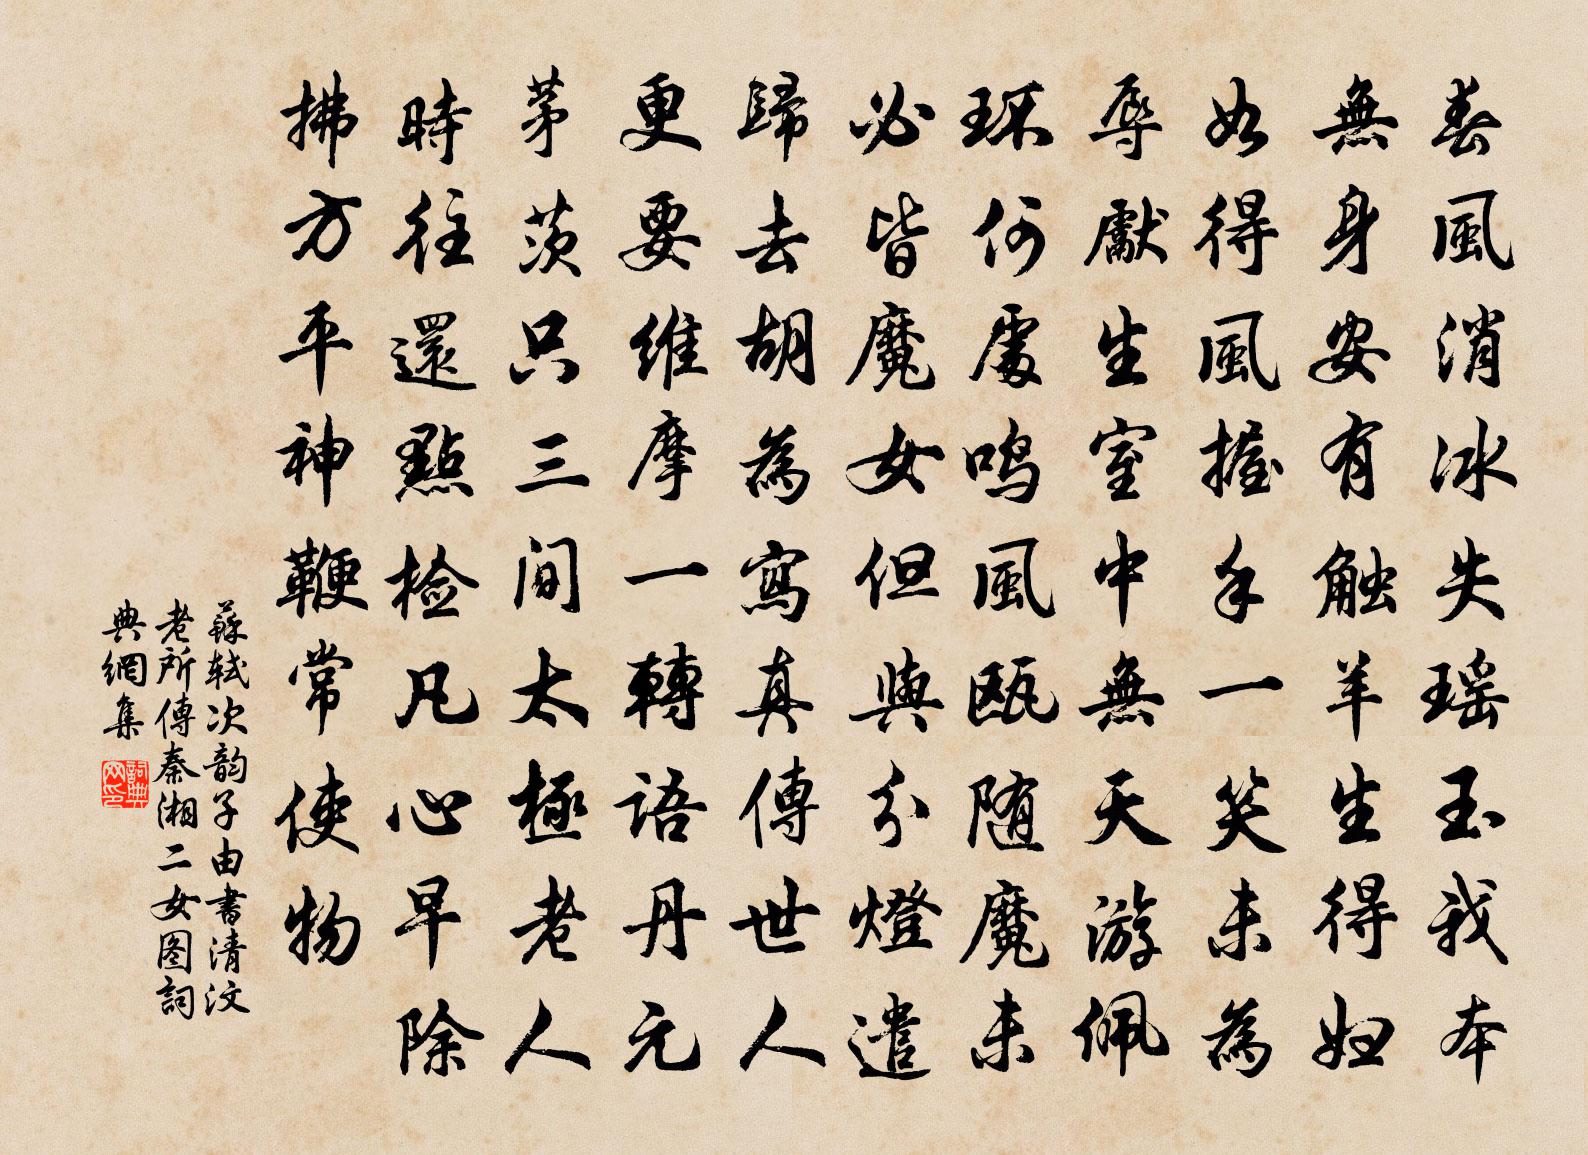 春風消冰失瑶玉我本
無身安有触羊生得妇
如得風握手一笑未為
辱獻生室中無天游佩
环何處鸣風瓯随魔未
必皆魔女但與分燈遣
歸去胡為寫真傳世人
更要维摩一轉语丹元
茅茨只三间太極老人
時往還點检凡心早除
拂方平神鞭常使物
蘇轼次韵子由書清汶
老所傳秦湘二女图詞
典網集
詞典网印